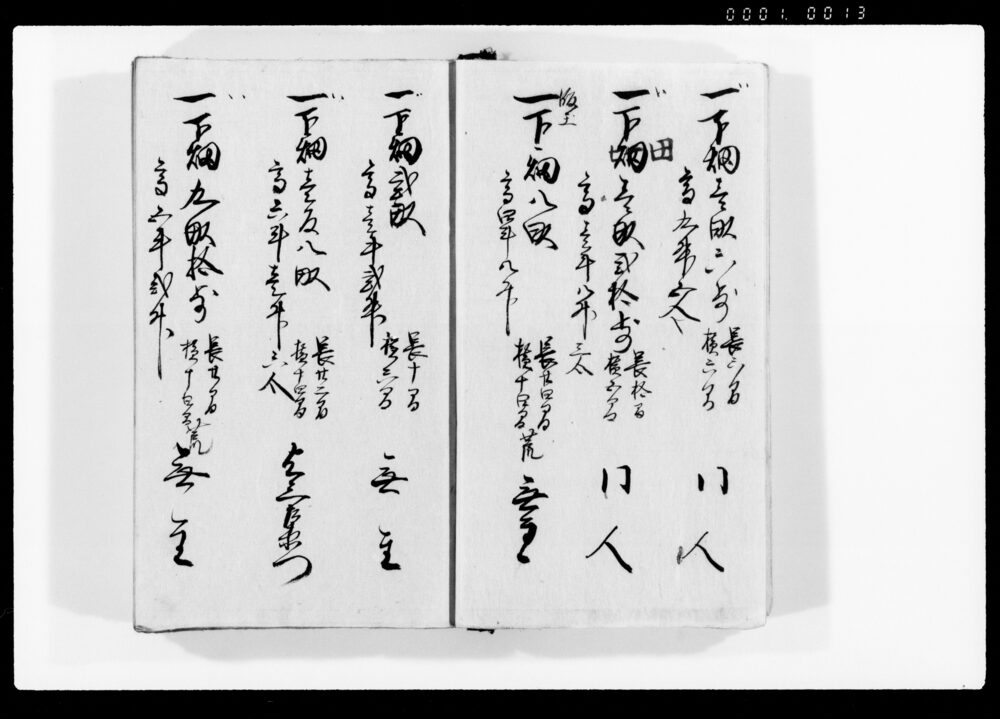 0001. 0013
一下畑壱畝六歩 長六間
横六間 同人
高九升六合
田
一下畑壱畝弐拾歩 長拾間
横五間 同人
高壱斗
一下畑八畝 長廿四間
横十間 荒 無主
高四斗八升
一下畑弐畝 長十間
横六間 無主
高壱斗弐升
一下畑壱反八畝 長廿二間
横十四間
高六斗壱升六合
一下畑九畝拾歩 長廿間
横十四間 荒 無主
高五斗